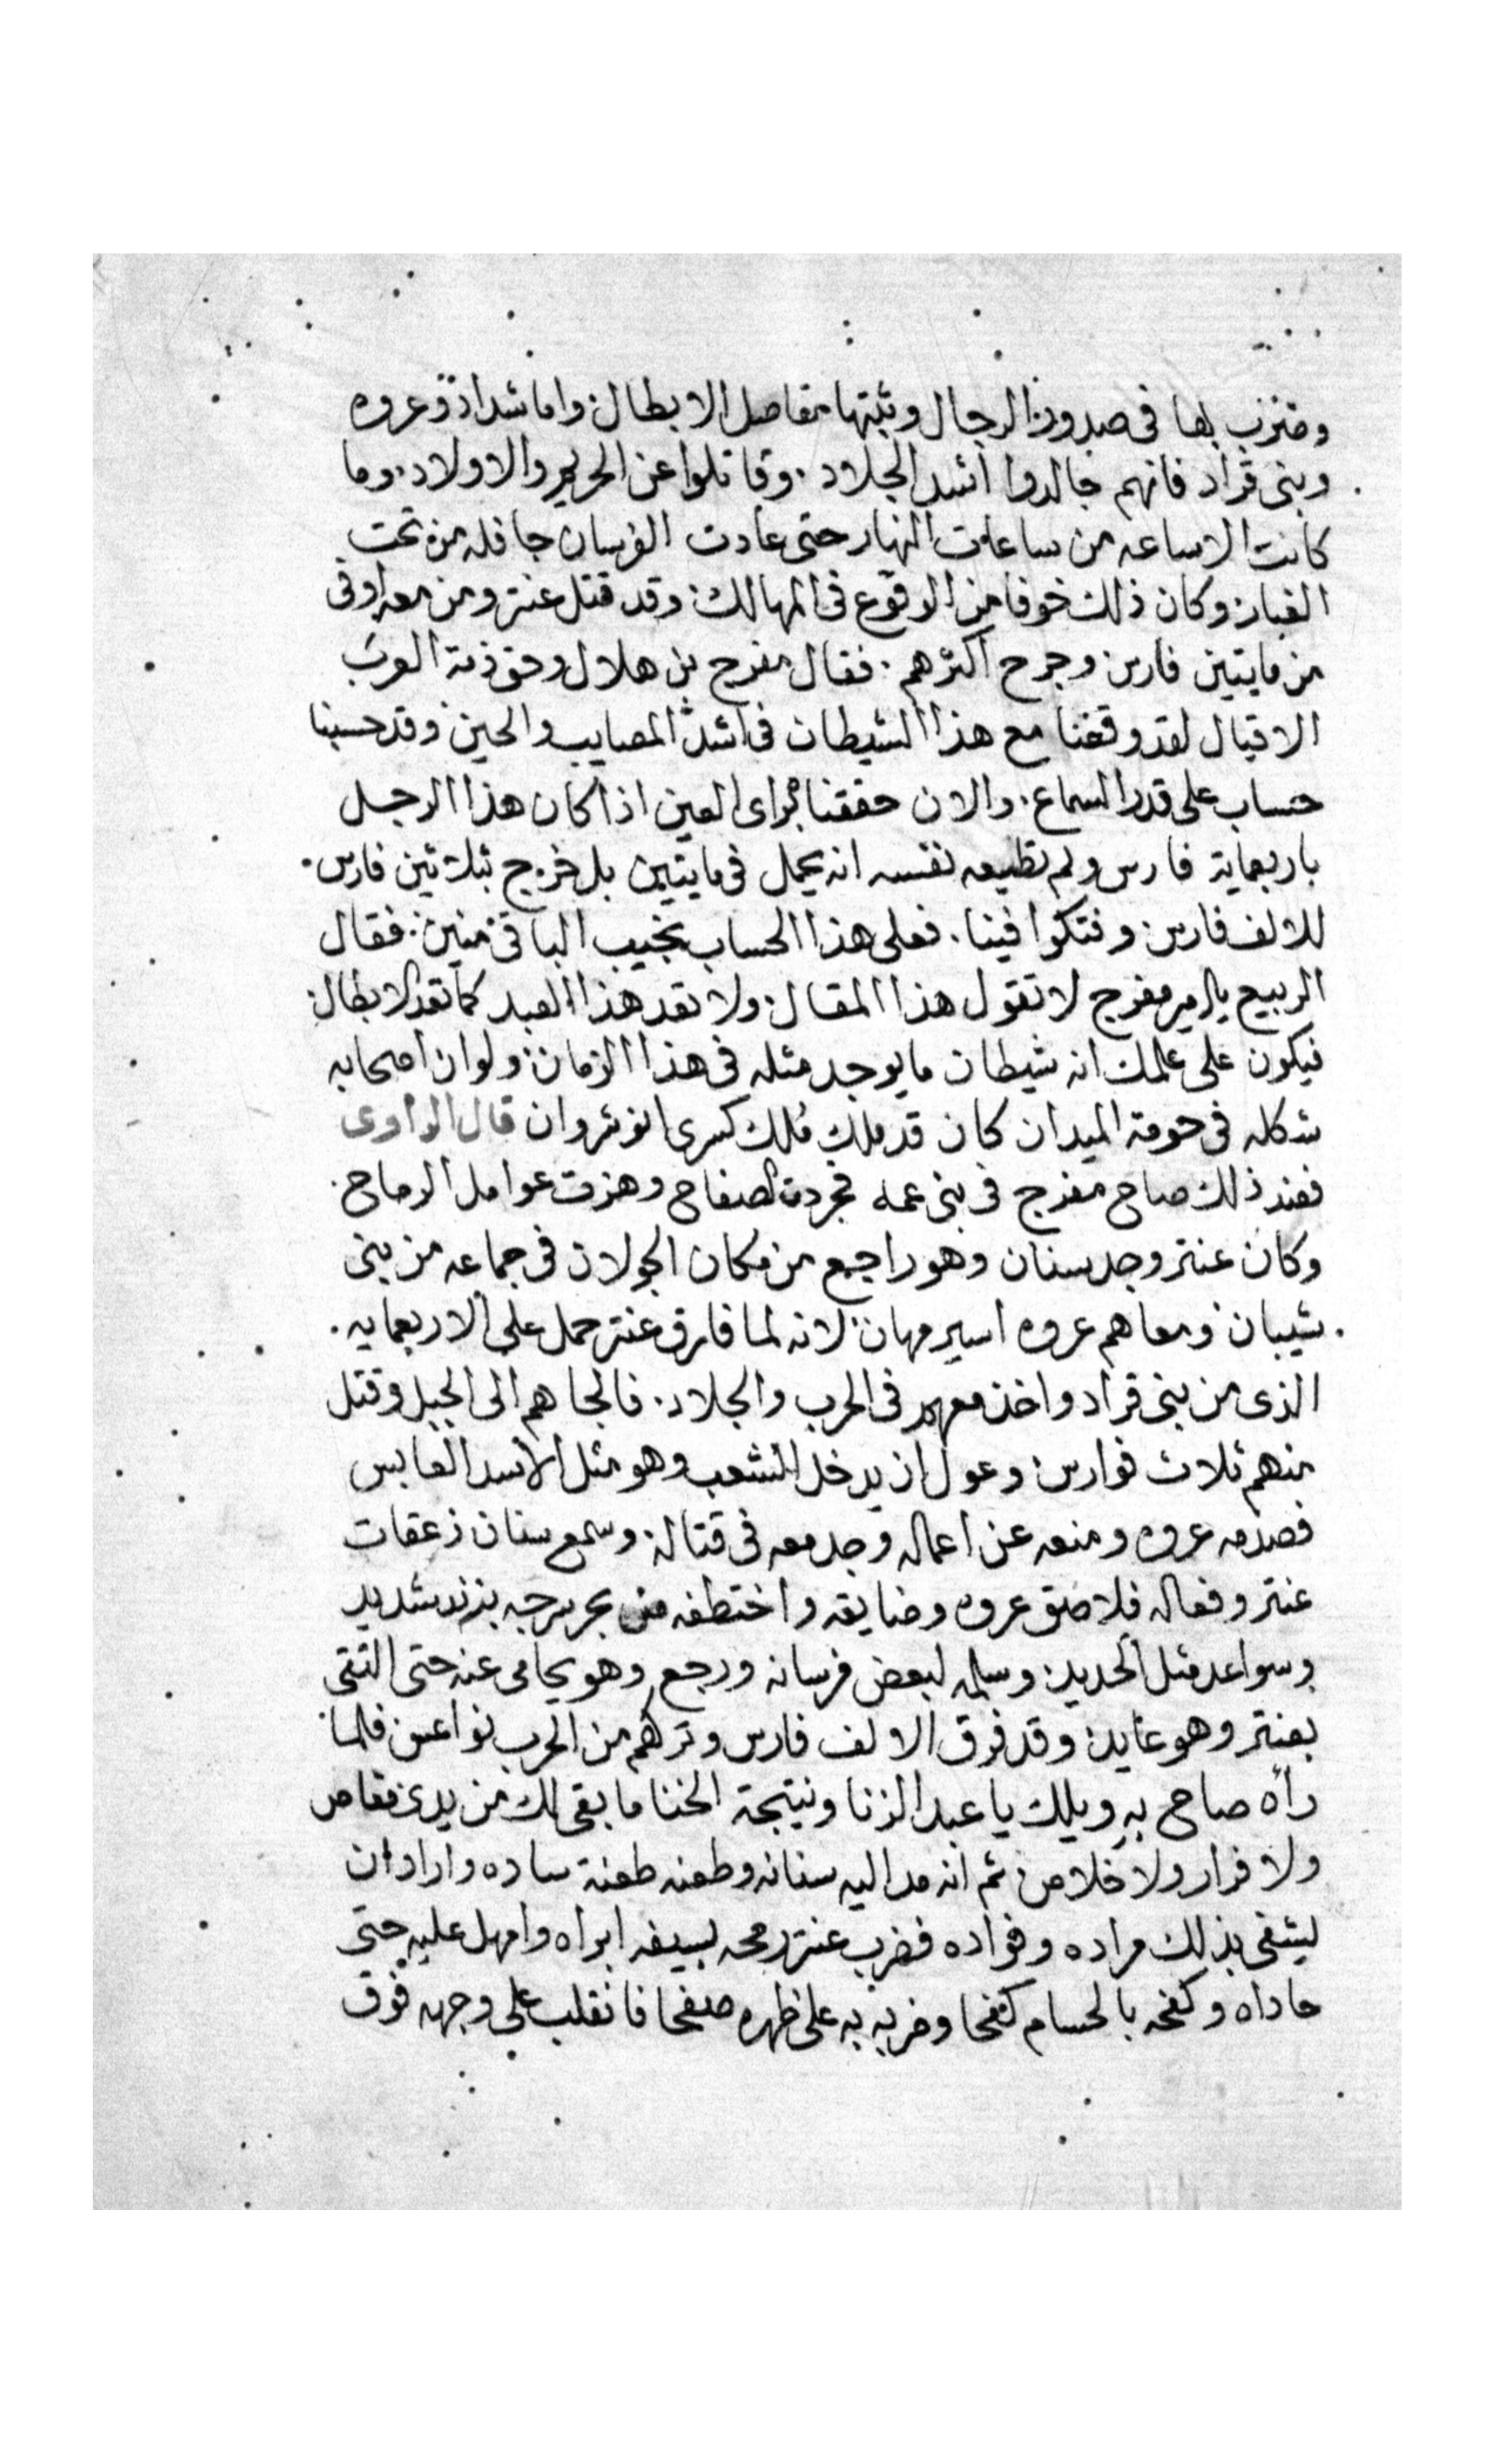 وضرب بها في صدور الرجال وثبتها مفاصل الابطال واما شداد وعروه
وبني قراد فانهم جالدوا اشد الجلاد وقاتلوا عن الحريم والاولاد وما
كانت الا ساعه من ساعات النهار حتى عادت الفرسان جافله من تحت
الغبار وكان ذلك خوفا من الوقوع في المهالك وقد قتل عنتر ومن معه اوفي
من مايتين فارس وجرح اكثرهم فقال مفرج بن هلال وحق ذمة العرب
الاقيال لقد وقعنا مع هذا الشيطان في اشد المصايب والحين وقد حسبنا
حساب على قدر السماع والان حققنا براى العين اذا كان هذا الرجل
باربعماية فارس ولم تطيعه نفسه انه يحمل في مايتين بل خرج بثلاثين فارس
للالف فارس وفتكوا فينا فعلى هذا الحساب يخيب الباقي منين فقال
الربيع يالامير مفرج لا تقول هذا المقال ولا تعد هذا العبد كما تعد الابطال
فيكون على علمك انه شيطان ما يوجد مثله في هذا الزمان ولو ان اصحابه
شكله في حومة الميدان كان قد ملك ملك كسرى انوشروان قال الراوى
فعند ذلك صاح مفرج في بني عمه فجردت الصفاح وهزت عوامل الرماح
وكان عنتر وجد سنان وهو راجع من مكان الجولان في جماعه من بني
شيبان ومعاهم عروه اسير مهان لانه لما فارق عنتر حمل على الاربعمايه
الذى من بني قراد واخذ معهم في الحرب والجلاد فالجاهم الى الجبل وقتل
منهم ثلاث فوارس وعول ان يدخل الشعب وهو مثل الاسد العابس
فصدمه عروه ومنعه عن اعماله وجد معه في قتاله وسمع سنان زعقات
عنتر وفعاله فلاصق عروه وضايقه واختطفه من بحر سرجه بزند شديد
وسواعد مثل الحديد وسلمه لبعض فرسانه ورجع وهو يحامي عنه حتى التقى
بعنتر وهو عايد وقد فرق الالف فارس وتركهم من الحرب نواعس فلما
راه صاح به ويلك يا عبد الزنا ونتيجة الخنا ما بقي لك من يدى مفاص
ولا فرار ولا خلاص ثم انه مد اليه سنانه وطعنه طعنة ساده واراد ان
ليشفي بذلك مراده وفواده فضرب عنتر رمحه بسيفه ابراه وامهل عليه حتى
حاداه وكفحه بالحسام كفحا وضربه به على ظهره صفحا فانقلب على وجهه فوق